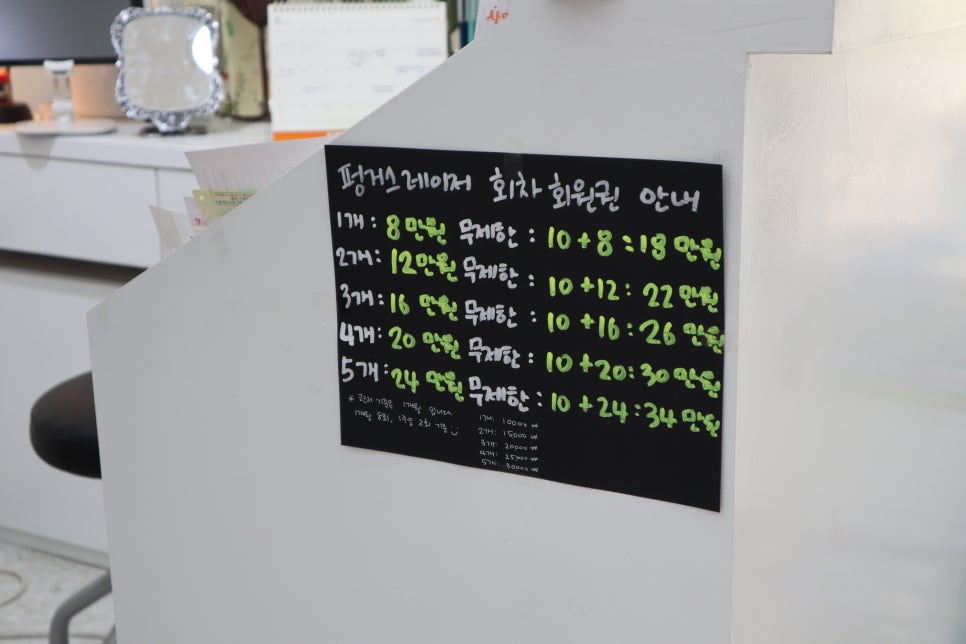 펑거스레이저 회차 회원권 안내
1개: 8만원 무제한: 10+8:18만원
2개: 12만원 무제한: 10+12: 22만원
3개: 16만원 무제한: 10+16:26만원
4개: 20만원 무제한: 10+20:30만원
5개: 24만원 무제한: 10+24:34만원
* 관리 기준은 1개월 입니다
1개월 8회, 1주일 2회 기준
1개: 10000₩
2개: 15000₩
3개: 20000₩
4개: 25000₩
5개: 30000₩